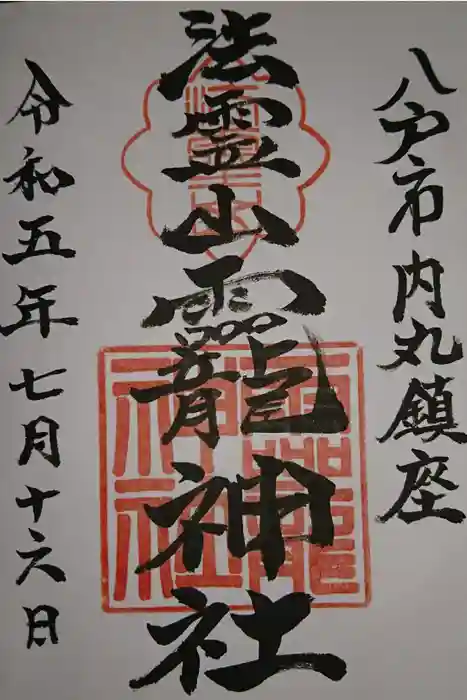 八戸市内丸鎮座
法霊山龗神社
令和五年七月十六日